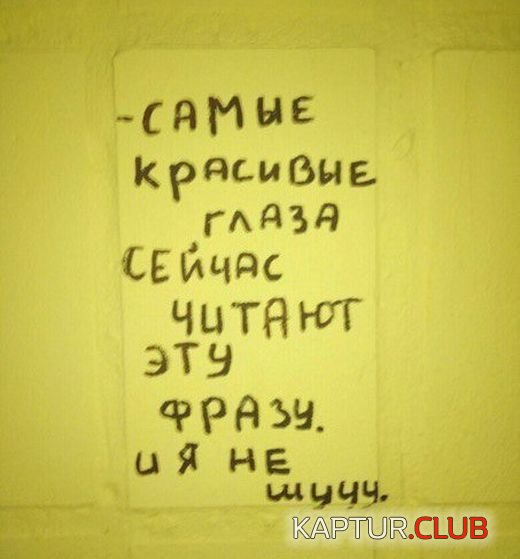 -САМЫЕ
КРАСИВЫЕ
ГЛАЗА
СЕЙЧАС
ЧИТАЮТ
ЭТУ
ФРАЗУ.
И Я НЕ
ШУЧУ.
KAPTUR.CLUB